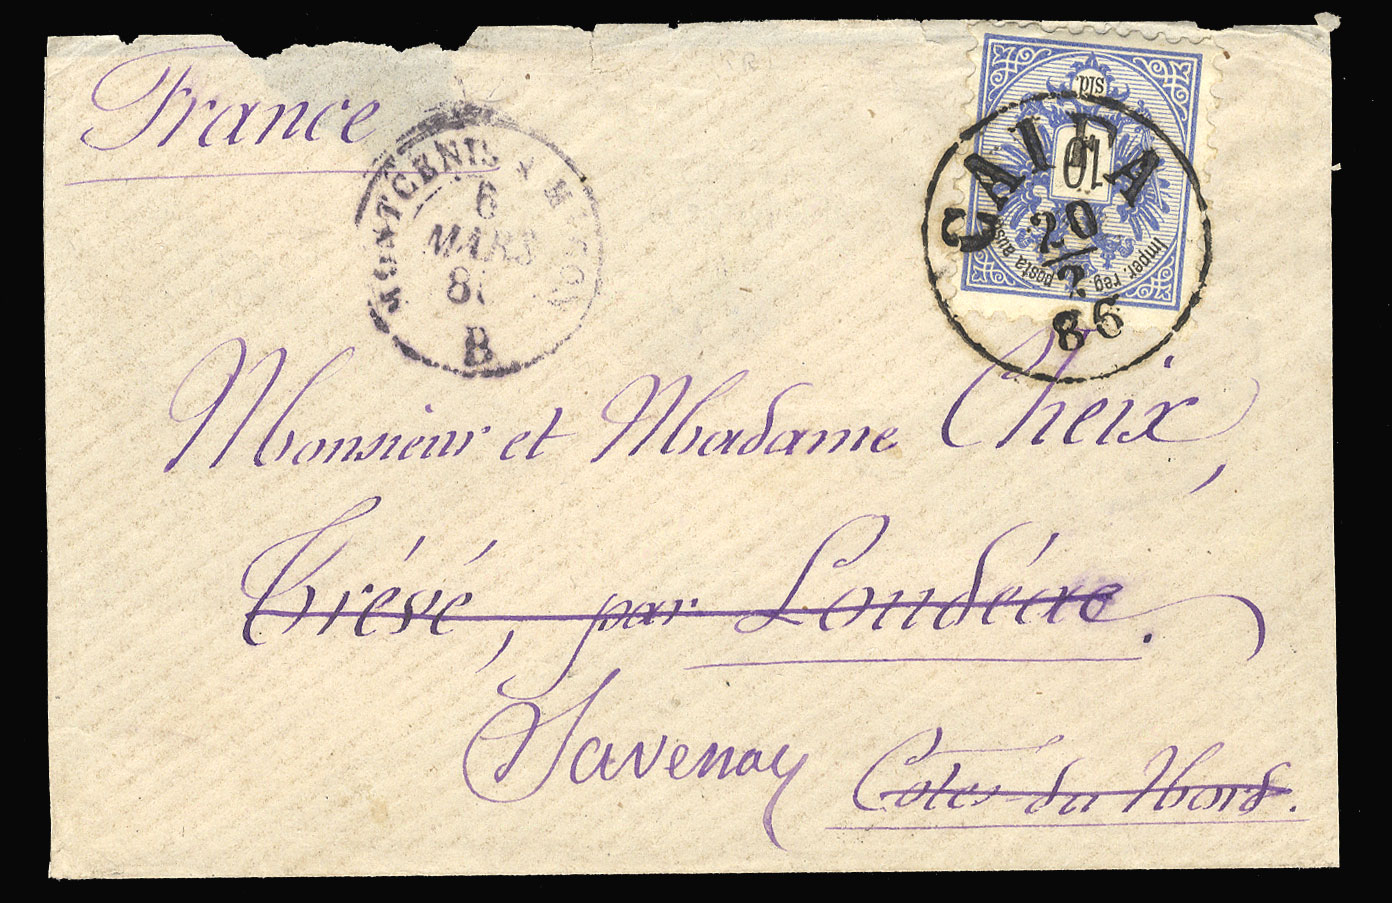 France
MONTCENIS A MACON
6
MARS
8
B
sld
10
Imper. reg. posta austr.
CAIFA
20
2
86
Monsieur et Madame Cheix,
Trévé, par Loudéac.
Savenay
Côtes-du-Nord.